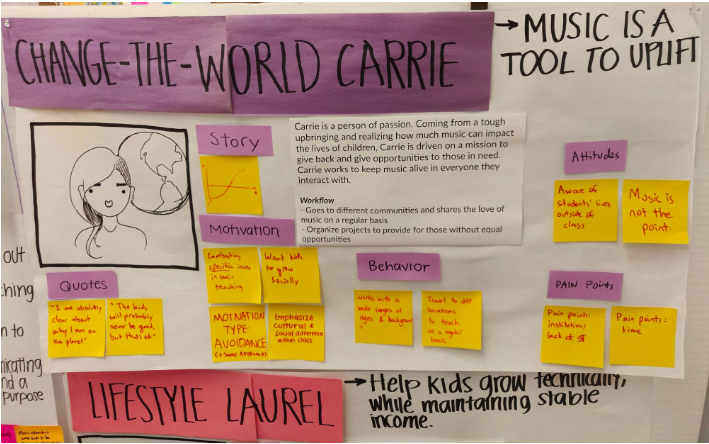 CHANGE-THE-WORLD CARRIE
→ MUSIC IS A
TOOL TO UPLIFT
Story
Carrie is a person of passion. Coming from a tough
upbringing and realizing how much music can impact
the lives of children, Carrie is driven on a mission to
give back and give opportunities to those in need.
Carrie works to keep music alive in everyone they
interact with.
Workflow
- Goes to different communities and shares the love of
music on a regular basis
- Organize projects to provide for those without equal
opportunities
Attitudes
Aware of
students' lives
outside of
class
Music is
not the
point.
Motivation
Combating
specific
in their
teaching
Want kids
to grow
socially
MOTIVATION
TYPE:
AVOIDANCE
(+ some Approach)
Emphasize
cultural &
social difference
within class
Behavior
works with a
wide ranges of
ages & background
Travel to diff
locations
to teach
on a regular
basis
Quotes
"I am absolutely
clear about
why I am on
the planet"
"The kids
will probably
never be good,
but that's ok"
PAIN Points
Pain points:
institution,
lack of $$
Pain points:
time
out
ching
n to
nd a
purpose
LIFESTYLE LAUREL
→ Help kids grow technically,
while maintaining stable
income.